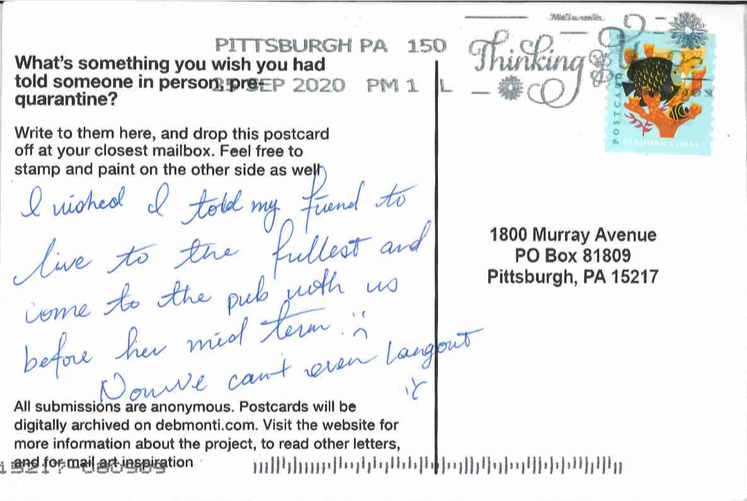 PITTSBURGH PA 150
SEP 2020 PM 1 L
Thinking
POSTCARD
What's something you wish you had
told someone in person, pre-
quarantine?
Write to them here, and drop this postcard
off at your closest mailbox. Feel free to
stamp and paint on the other side as well
I wished I told my friend to
live to the fullest and
come to the pub with us
before her mid term :(
Now we can't even hangout
:(
1800 Murray Avenue
PO Box 81809
Pittsburgh, PA 15217
All submissions are anonymous. Postcards will be
digitally archived on debmonti.com. Visit the website for
more information about the project, to read other letters,
and for mail art inspiration